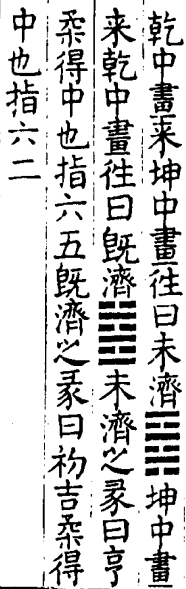 乾中畫来坤中畫徃曰未濟䷿坤中畫
来乾中畫徃曰旣濟䷾未濟之彖曰亨
柔得中也指六五旣濟之彖曰初吉柔得
中也指六二